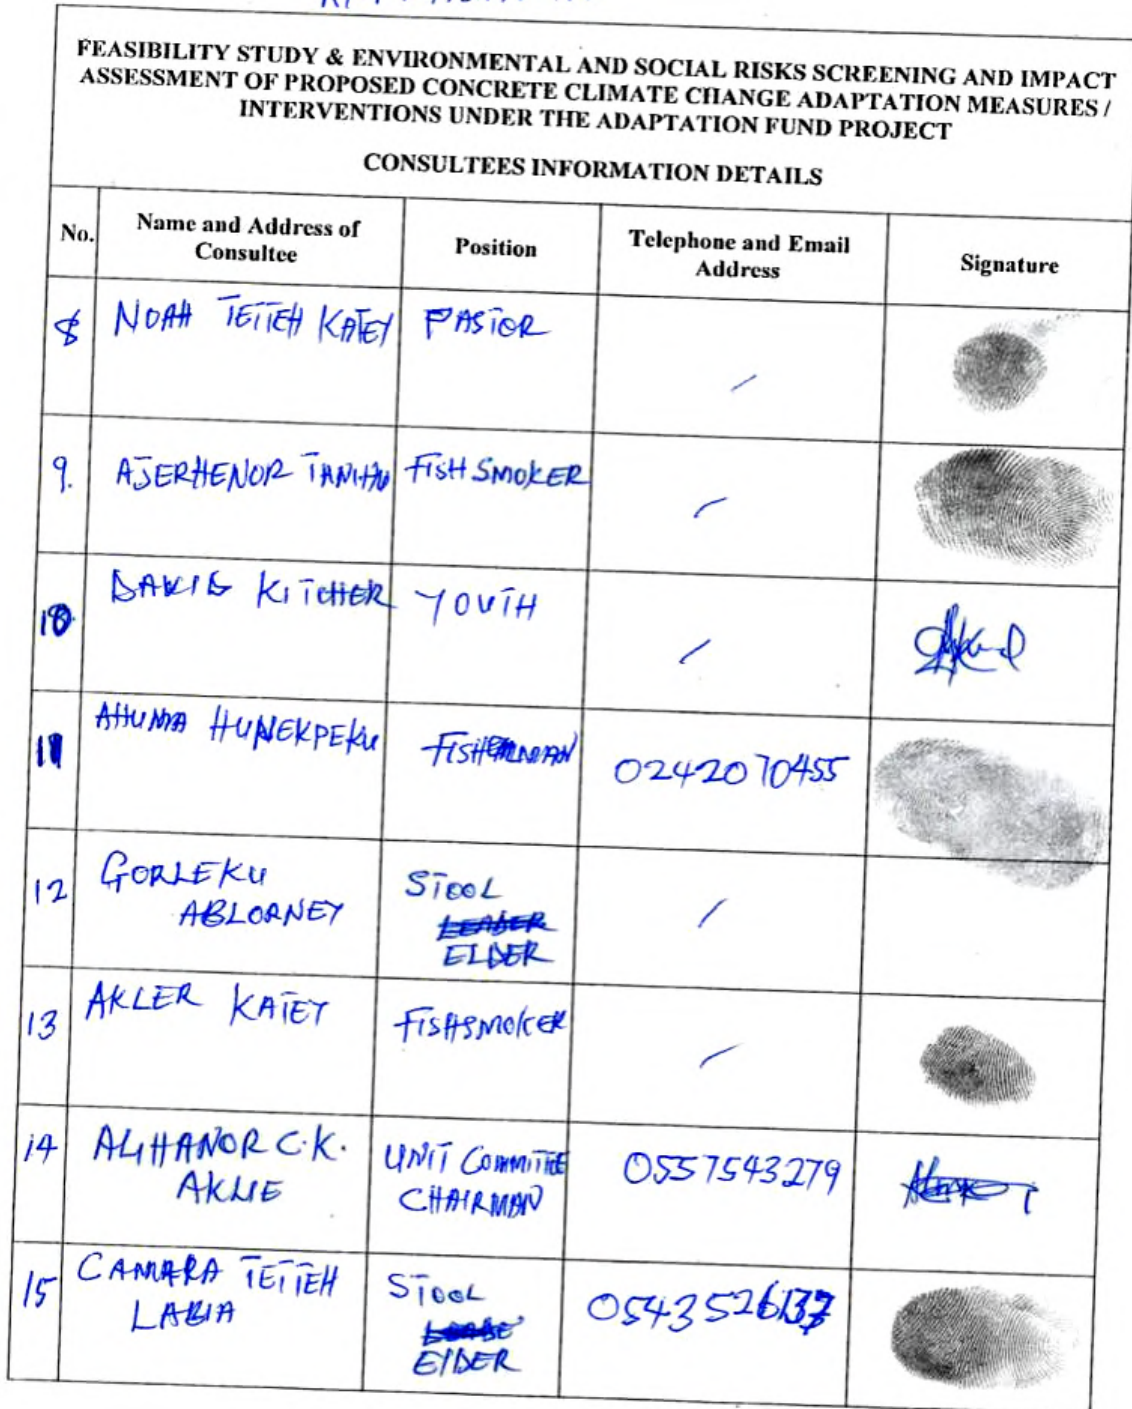 FEASIBILITY STUDY & ENVIRONMENTAL AND SOCIAL RISKS SCREENING AND IMPACT
ASSESSMENT OF PROPOSED CONCRETE CLIMATE CHANGE ADAPTATION MEASURES /
INTERVENTIONS UNDER THE ADAPTATION FUND PROJECT
CONSULTEES INFORMATION DETAILS
No. Name and Address of Consultee Position Telephone and Email Address Signature
8 NOAH TETTEH KATEY PASTOR /
9. AJERHENOR FISH SMOKER /
10 KITCHER YOUTH /
11 AHUMA HUNEKPEKU FISHERMAN 0242070455
12 GORLEKU STOOL /
ABLORNEY LEADER
ELDER
13 AKLER KATEY FISHSMOKER /
14 C.K. UNIT COMMITTEE 0557543279
AKLIE CHAIRMAN
15 CAMARA TETTEH STOOL
LABIA ELDER